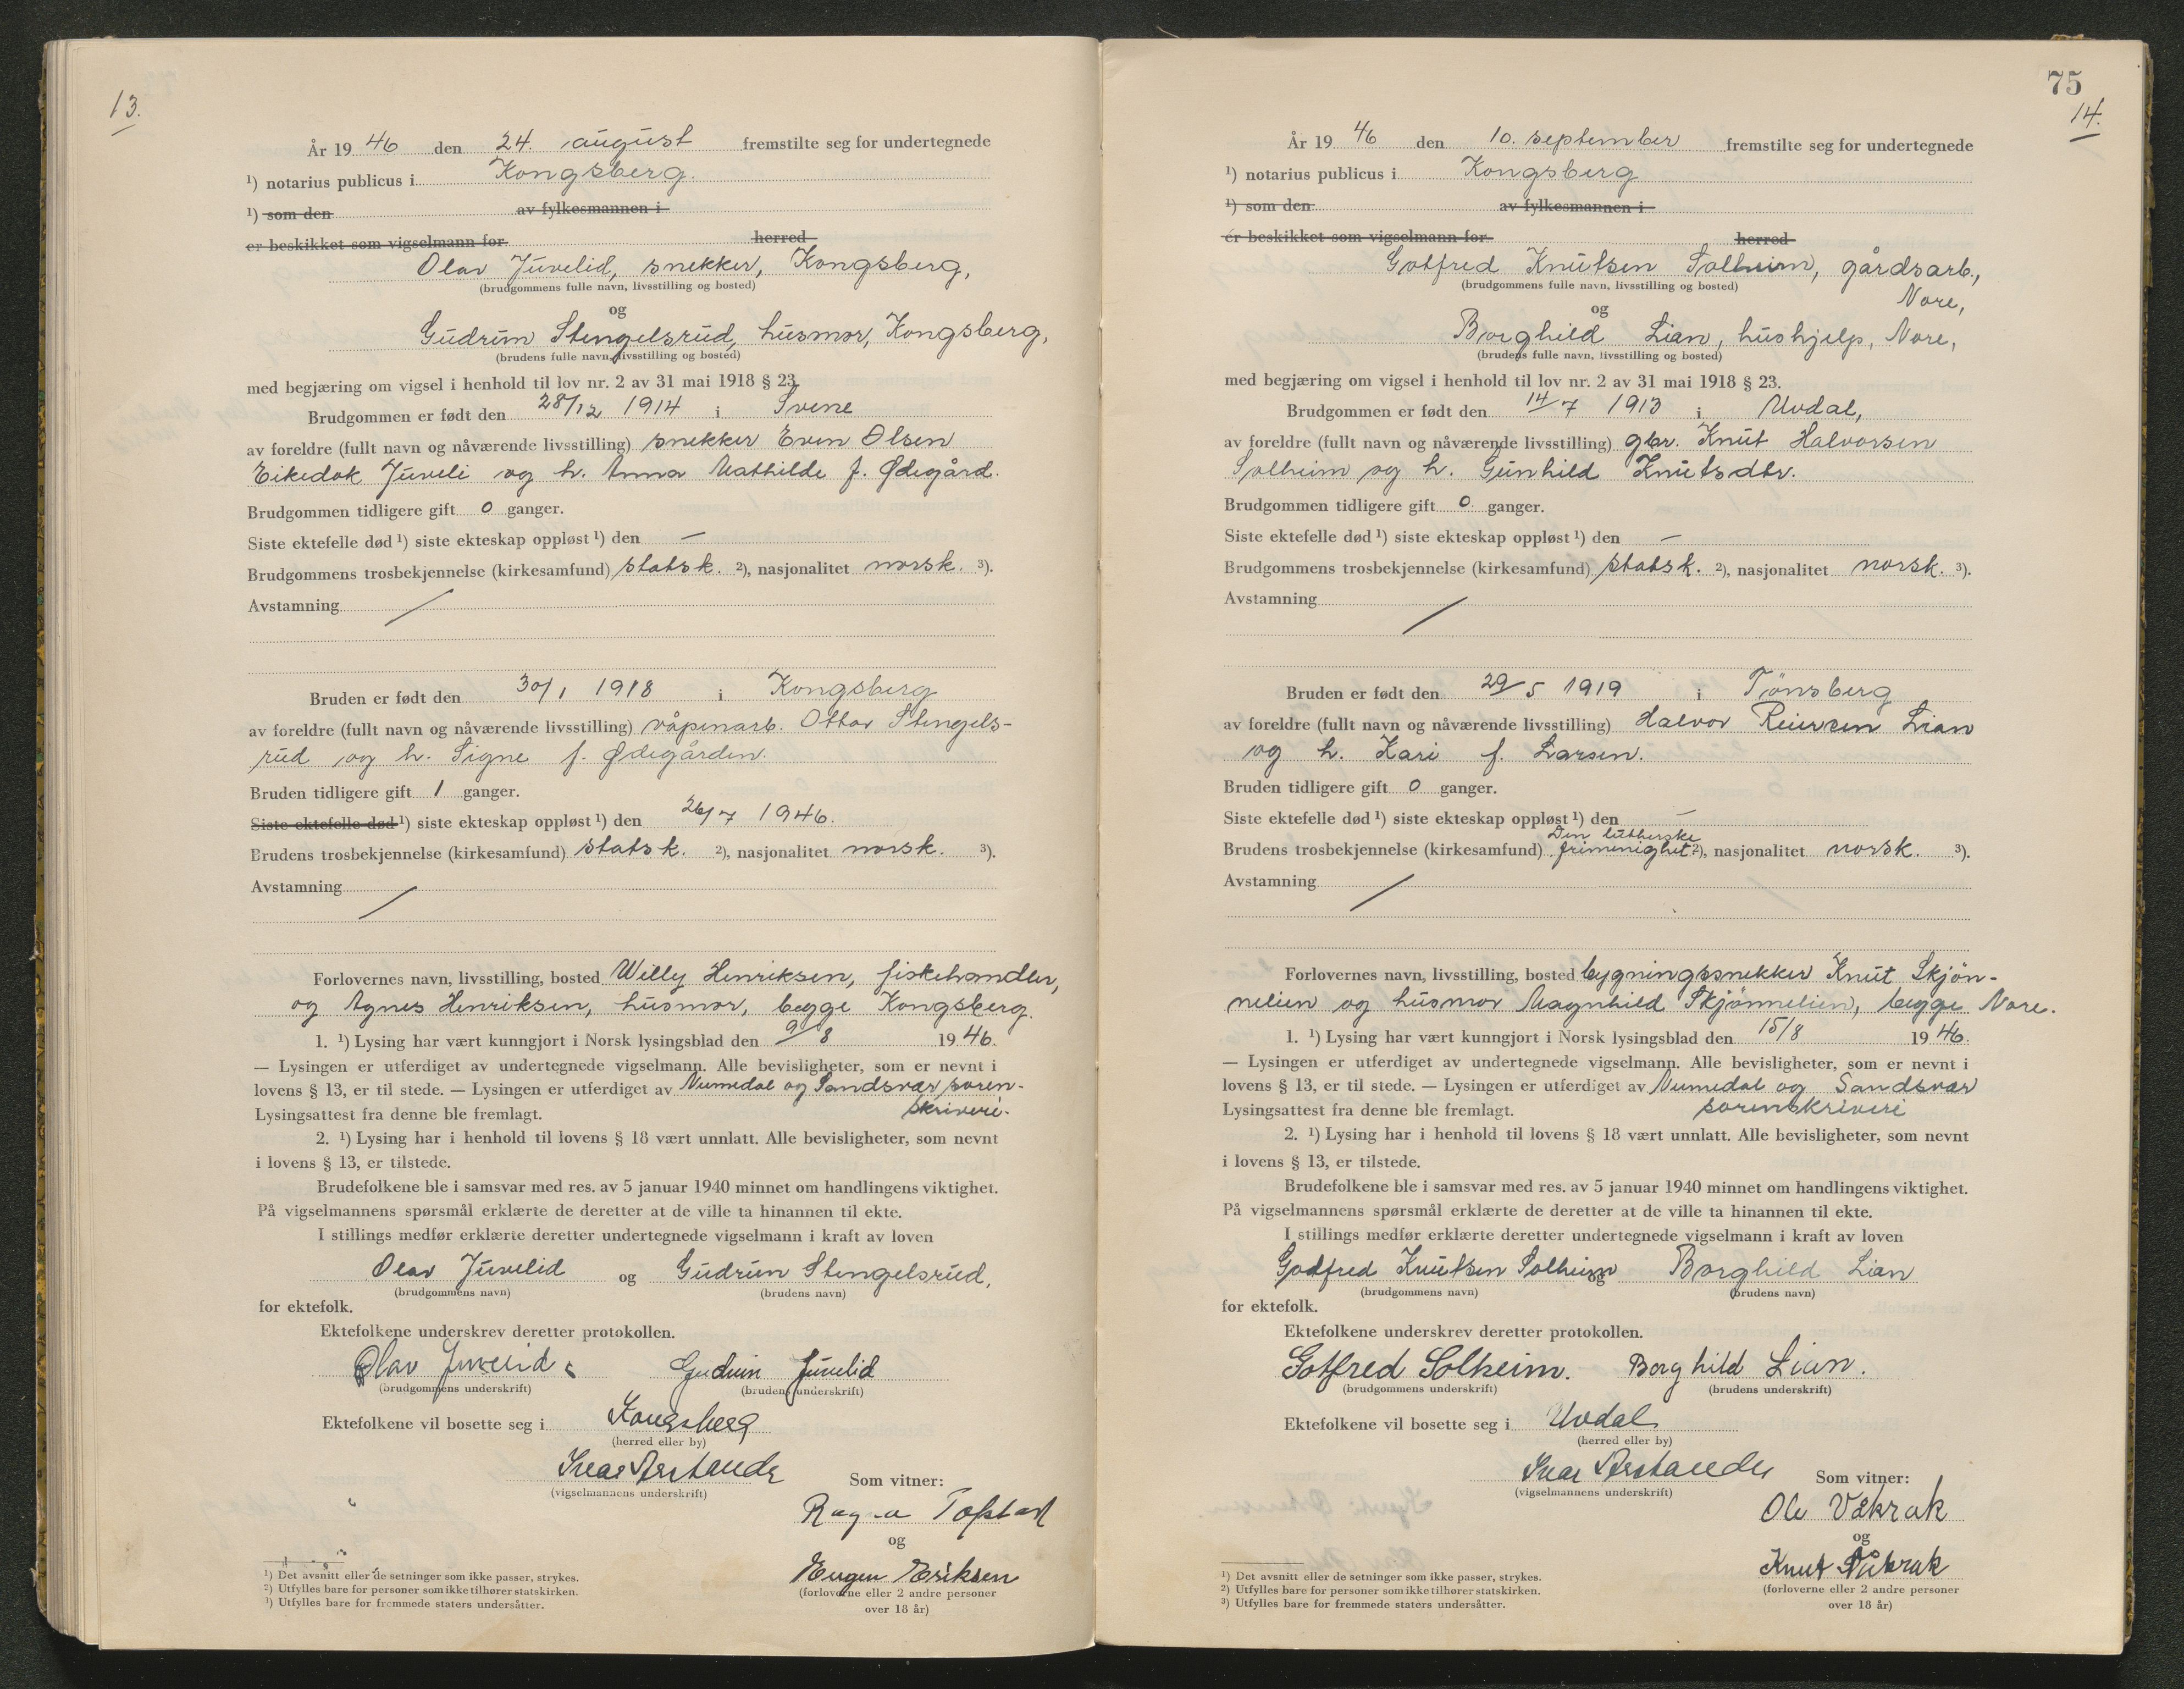 13.
År 19 46 den 24. august fremstilte seg for undertegnede
¹) notarius publicus i Kongsberg.
¹) som den av fylkesmannen i
er beskikket som vigselmann for herred
Olav Juvelid, snekker, Kongsberg,
(brudgommens fulle navn, livsstilling og bosted)
og
Gudrun Stengelsrud, husmor, Kongsberg,
(brudens fulle navn, livsstilling og bosted)
med begjæring om vigsel i henhold til lov nr. 2 av 31 mai 1918 § 23.
Brudgommen er født den 28/12 1914 i Svene
av foreldre (fullt navn og nåværende livsstilling) snekker Even Olsen
Eikedok Juveli og h. Anna Mathilde f. Ødegård.
Brudgommen tidligere gift 0 ganger.
Siste ektefelle død ¹) siste ekteskap oppløst ¹) den —
Brudgommens trosbekjennelse (kirkesamfund) statsk. ²), nasjonalitet norsk. ³).
Avstamning /
Bruden er født den 30/1 1918 i Kongsberg
av foreldre (fullt navn og nåværende livsstilling) våpenarb. Ottar Stengels-
rud og h. Signe f. Ødegården.
Bruden tidligere gift 1 ganger.
Siste ektefelle død ¹) siste ekteskap oppløst ¹) den 26/7 1946.
Brudens trosbekjennelse (kirkesamfund) statsk. ²), nasjonalitet norsk. ³).
Avstamning /
Forlovernes navn, livsstilling, bosted Willy Henriksen, fiskehandler,
og Agnes Henriksen, husmor, begge Kongsberg.
1. ¹) Lysing har vært kunngjort i Norsk lysingsblad den 9/8 1946.
— Lysingen er utferdiget av undertegnede vigselmann. Alle bevisligheter, som er nevnt i
lovens § 13, er til stede. — Lysingen er utferdiget av Numedal og Sandsvær soren-
Lysingsattest fra denne ble fremlagt. skriveri.
2. ¹) Lysing har i henhold til lovens § 18 vært unnlatt. Alle bevisligheter, som nevnt
i lovens § 13, er tilstede.
Brudefolkene ble i samsvar med res. av 5 januar 1940 minnet om handlingens viktighet.
På vigselmannens spørsmål erklærte de deretter at de ville ta hinannen til ekte.
I stillings medfør erklærte deretter undertegnede vigselmann i kraft av loven
Olav Juvelid og Gudrun Stengelsrud,
(brudgommens navn) (brudens navn)
for ektefolk.
Ektefolkene underskrev deretter protokollen.
Olav Juvelid Gudrun Juvelid
(brudgommens underskrift) (brudens underskrift)
Ektefolkene vil bosette seg i Kongsberg
(herred eller by)
Som vitner:
(vigselmannens underskrift)
Tofstad
og
Eugen Eriksen
(forloverne eller 2 andre personer
over 18 år)
¹) Det avsnitt eller de setninger som ikke passer, strykes.
²) Utfylles bare for personer som ikke tilhører statskirken.
¹) Utfylles bare for fremmede staters undersåtter.
75
14.
År 19 46 den 10. september fremstilte seg for undertegnede
¹) notarius publicus i Kongsberg
¹) som den av fylkesmannen i
er beskikket som vigselmann for herred
Gotfred Knutsen Solheim, gårdsarb.,
(brudgommens fulle navn, livsstilling og bosted)
Nore,
og
Borghild Lian, hushjelp, Nore,
(brudens fulle navn, livsstilling og bosted)
med begjæring om vigsel i henhold til lov nr. 2 av 31 mai 1918 § 23.
Brudgommen er født den 14/7 1913 i Uvdal,
av foreldre (fullt navn og nåværende livsstilling) gbr. Knut Halvorsen
Solheim og h. Gunhild Knutsdtr.
Brudgommen tidligere gift 0 ganger.
Siste ektefelle død ¹) siste ekteskap oppløst ¹) den —
Brudgommens trosbekjennelse (kirkesamfund) statsk. ²), nasjonalitet norsk. ³).
Avstamning /
Bruden er født den 29/5 1919 i Tönsberg
av foreldre (fullt navn og nåværende livsstilling) Halvor Reiersen Lian
og h. Kari f. Larsen.
Bruden tidligere gift 0 ganger.
Siste ektefelle død ¹) siste ekteskap oppløst ¹) den —
Den lutherske
Brudens trosbekjennelse (kirkesamfund) frimenighet ²), nasjonalitet norsk. ³).
Avstamning /
Forlovernes navn, livsstilling, bosted bygningssnekker Knut Skjön-
nelien og husmor Magnhild Skjönnelien, begge Nore.
1. ¹) Lysing har vært kunngjort i Norsk lysingsblad den 15/8 1946.
— Lysingen er utferdiget av undertegnede vigselmann. Alle bevisligheter, som er nevnt i
lovens § 13, er til stede. — Lysingen er utferdiget av Numedal og Sandsvær
Lysingsattest fra denne ble fremlagt. sorenskriveri
2. ¹) Lysing har i henhold til lovens § 18 vært unnlatt. Alle bevisligheter, som nevnt
i lovens § 13, er tilstede.
Brudefolkene ble i samsvar med res. av 5 januar 1940 minnet om handlingens viktighet.
På vigselmannens spørsmål erklærte de deretter at de ville ta hinannen til ekte.
I stillings medfør erklærte deretter undertegnede vigselmann i kraft av loven
Godfred Knutsen Solheim og Borghild Lian
(brudgommens navn) (brudens navn)
for ektefolk.
Ektefolkene underskrev deretter protokollen.
Gotfred Solheim. Borghild Lian.
(brudgommens underskrift) (brudens underskrift)
Ektefolkene vil bosette seg i Uvdal
(herred eller by)
Som vitner:
(vigselmannens underskrift)
Ole
og
Knut
(forloverne eller 2 andre personer
over 18 år)
¹) Det avsnitt eller de setninger som ikke passer, strykes.
²) Utfylles bare for personer som ikke tilhører statskirken.
³) Utfylles bare for fremmede staters undersåtter.